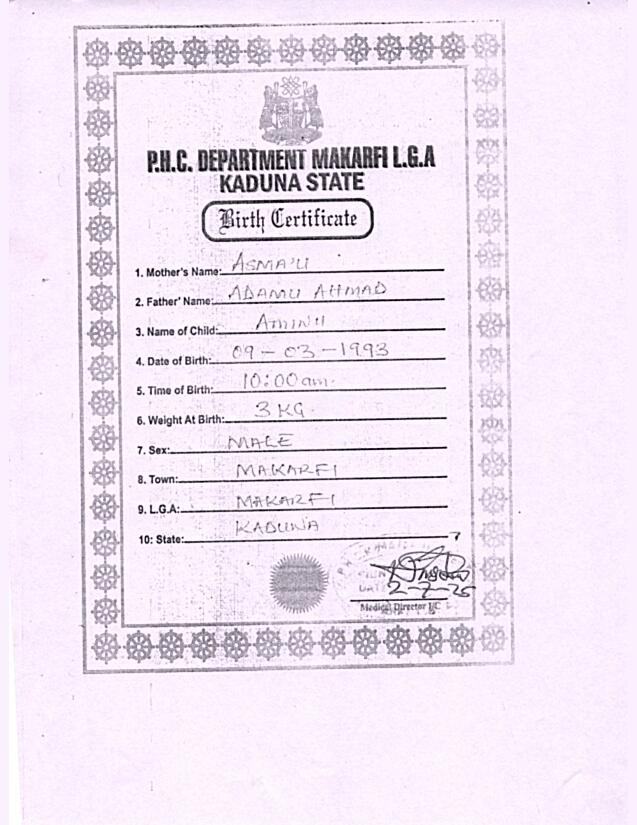 P.H.C. DEPARTMENT MAKARFI L.G.A
KADUNA STATE
Birth Certificate
1. Mother's Name: ASMA'U
2. Father' Name: ADAMU AHMAD
3. Name of Child: AMINU
4. Date of Birth: 09-03-1993
5. Time of Birth: 10:00am.
6. Weight At Birth: 3KG.
7. Sex: MALE
8. Town: MAKARFI
9. L.G.A: MAKARFI
10: State: KADUNA
2-2-25
Medical Director I/C